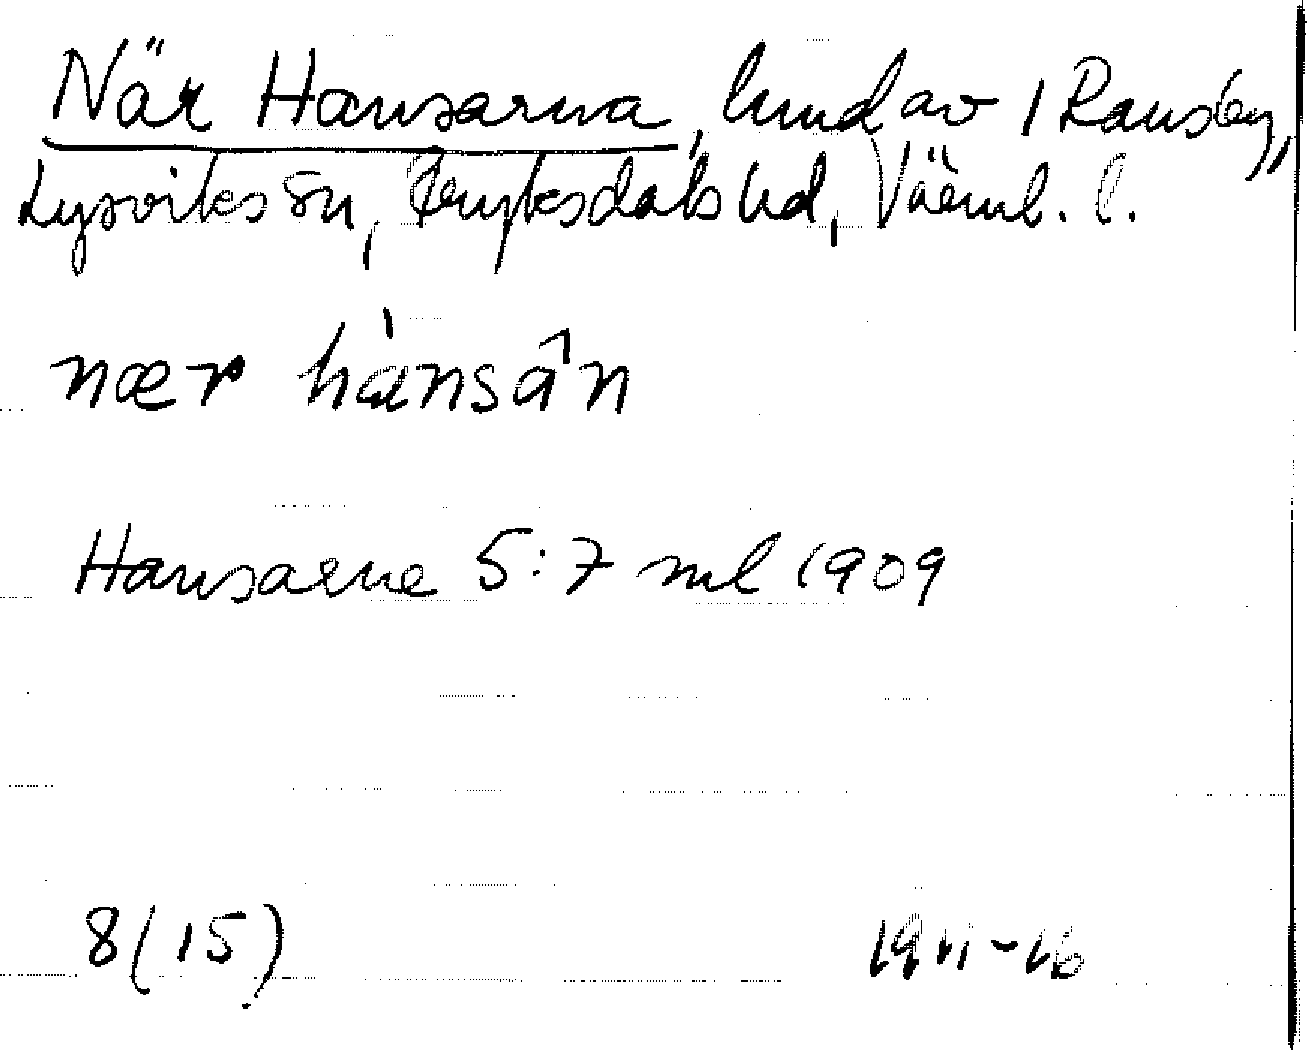 När Hansarna, hmd av 1 Ransby,
Lysviks sn, Fryksdals hd, Värml. l.
nær hànsân
Hansarne 5:7 ml 1909
8(15) 1911-16